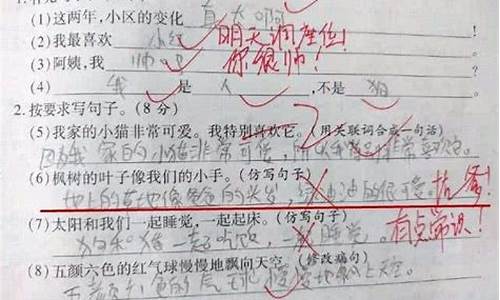 (1)这两年,小区的变化 真大啊
(2)我最喜欢 小红 明天调座位!
(3)阿姨,我 帅吧 你很帅!
(4) 我 是 人 ,不是 狗
2.按要求写句子。(8 分)
(5)我家的小猫非常可爱。我特别喜欢它。(用关联词合成一句话)
因为我家的小猫非常可爱,所以我特别喜欢它。
(6)枫树的叶子像我们的小手。(仿写句子)
地上的草地像爸爸的头发,绿油油的很可爱。 抗爹!
(7)太阳和我们一起睡觉,一起起床。(仿写句子)
狗和猪一起吃饭,一起睡觉。 有点常识!
(8)五颜六色的红气球慢慢地飘向天空。(修改病句)
五颜六色的气球慢慢地飘上天空。